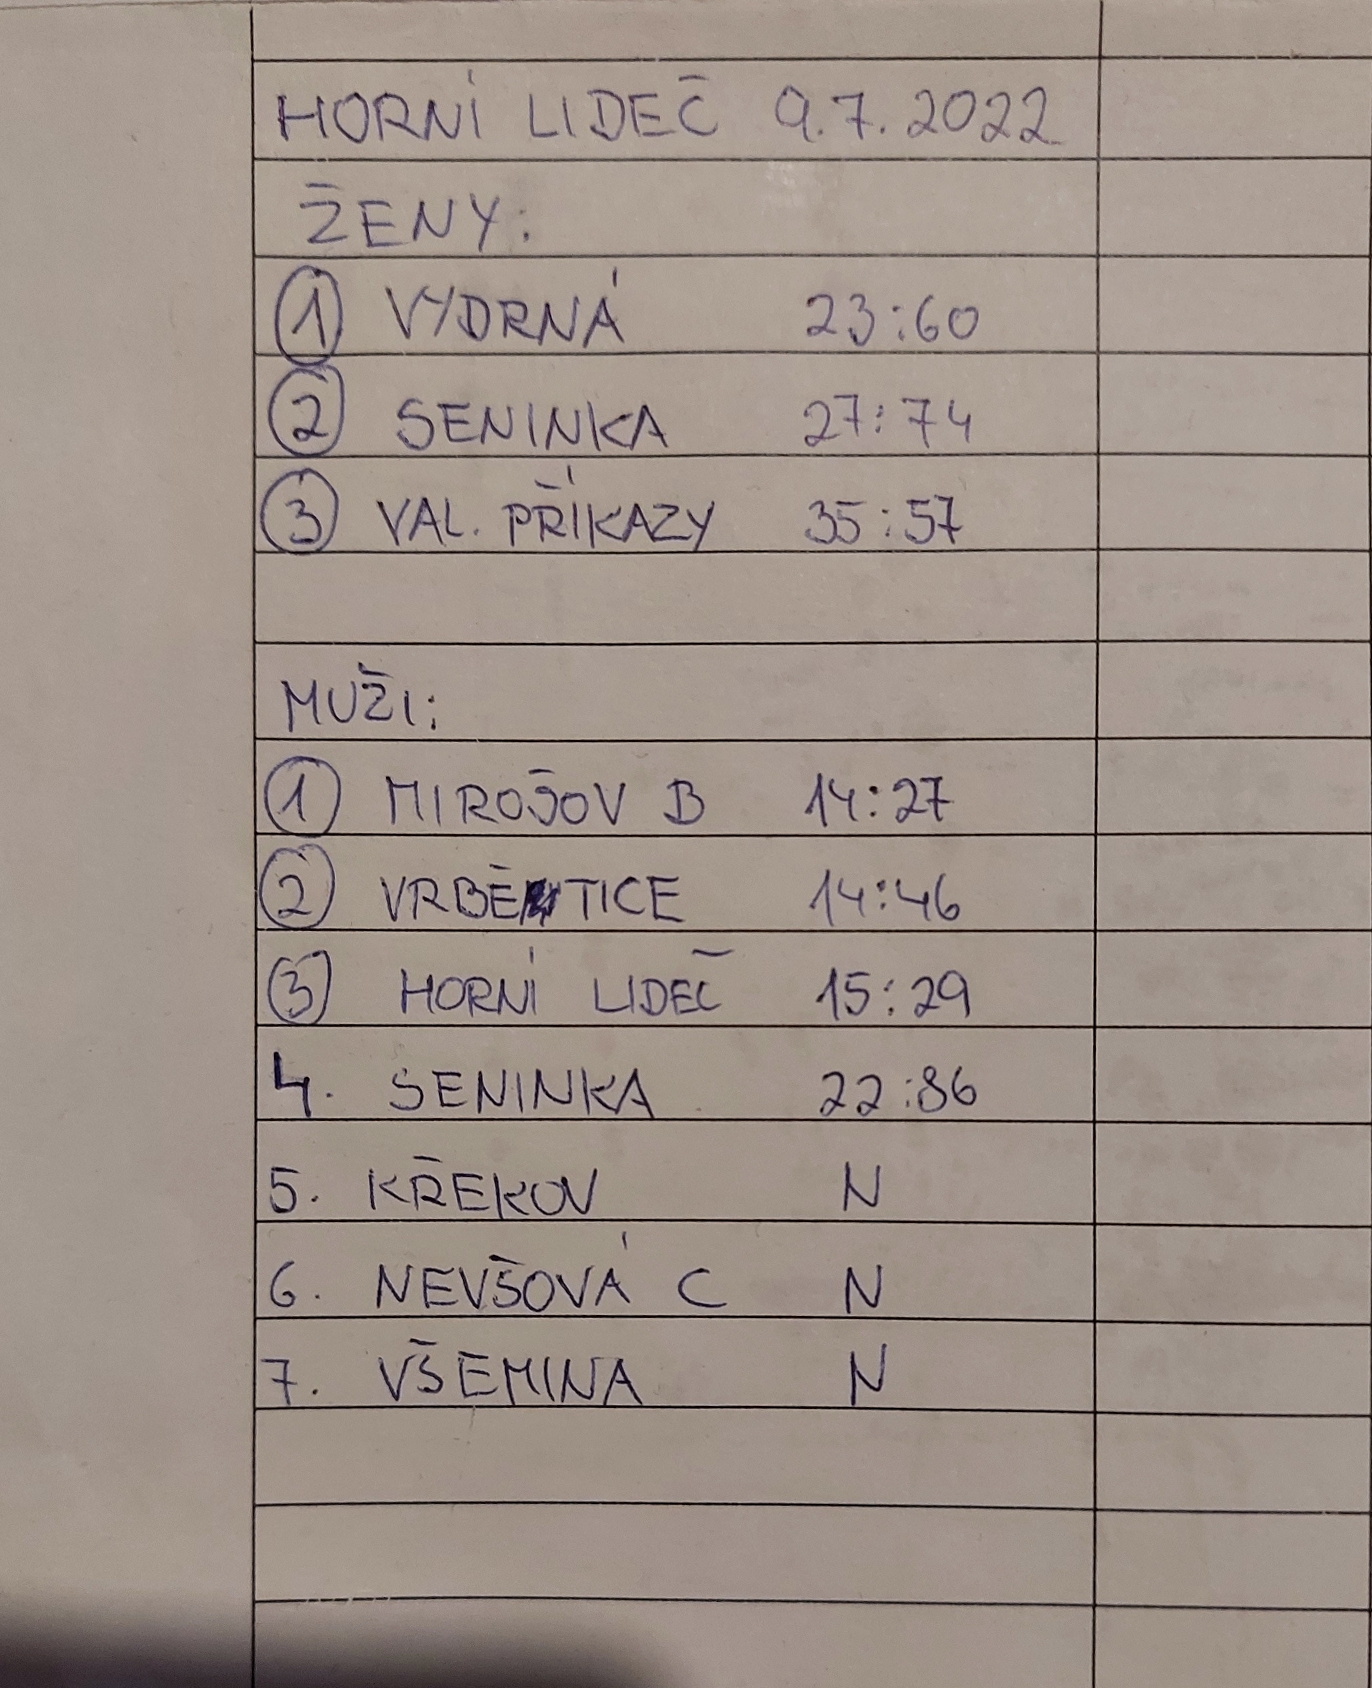 HORNÍ LIDEČ 9.7.2022
ŽENY:
1 VYDRNÁ 23:60
2 SENINKA 27:74
3 VAL. PŘÍKAZY 35:57
MUŽI:
1 MIROŠOV B 14:27
2 VRBĚTICE 14:46
3 HORNÍ LIDEČ 15:29
4. SENINKA 22:86
5. KŘEKOV N
6. NEVŠOVÁ C N
7. VŠEMINA N